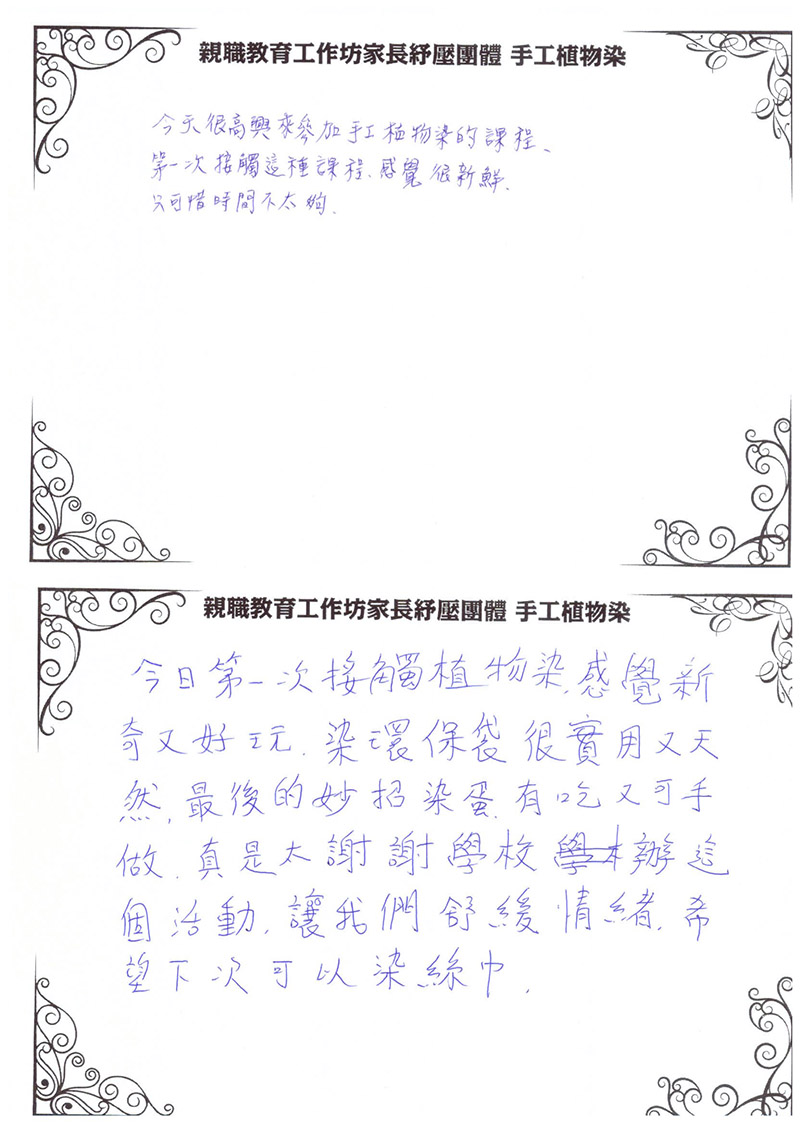 親職教育工作坊家長紓壓團體 手工植物染
今天很高興來參加手工植物染的課程、
第一次接觸這種課程、感覺很新鮮.
只可惜時間不太夠.
親職教育工作坊家長紓壓團體 手工植物染
今日第一次接觸植物染,感覺新
奇又好玩.染環保袋很實用又天
然,最後的妙招染蛋.有吃又可手
做.真是太謝謝學校辦這
個活動,讓我們舒緩情緒.希
望下次可以染絲巾.